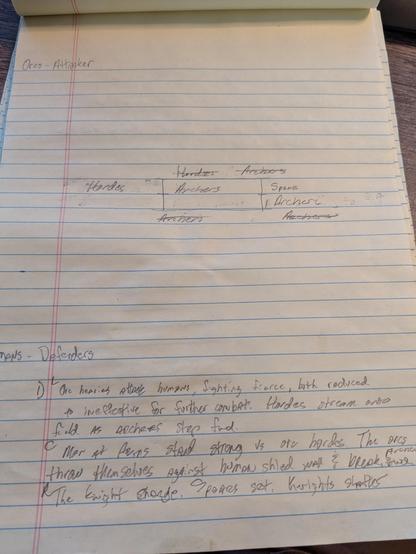 Orcs - Attacker
Hordes Archers
Hordes Archers Spears
Archers
Archers Archers
mans - Defenders
1) L Orc heavies attack humans fighting fierce, both reduced
to ineffective for further combat. Hordes stream onto
field as archers step fwd.
C Men at Arms stand strong vs orc hordes. The orcs
throw themselves against human shield wall & break,
R The knight charge. Spears set. knights